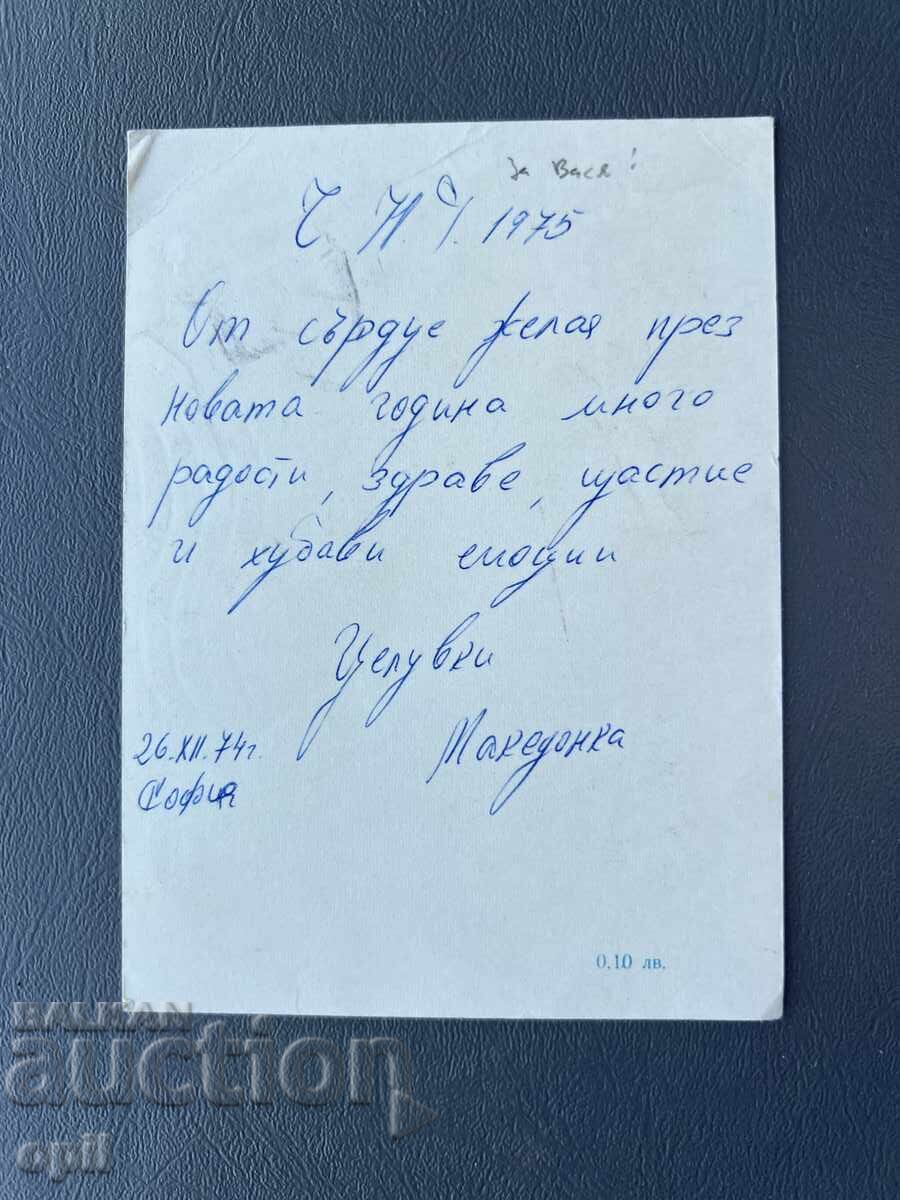 За Вася!
Ч. Н. Г. 1975
От сърдце желая през
новата година много
радости, здраве, щастие
и хубави емоции
Целувки
26.XII.74г.
Македонка
София
0.10 лв.
BALKAN
auction
opil